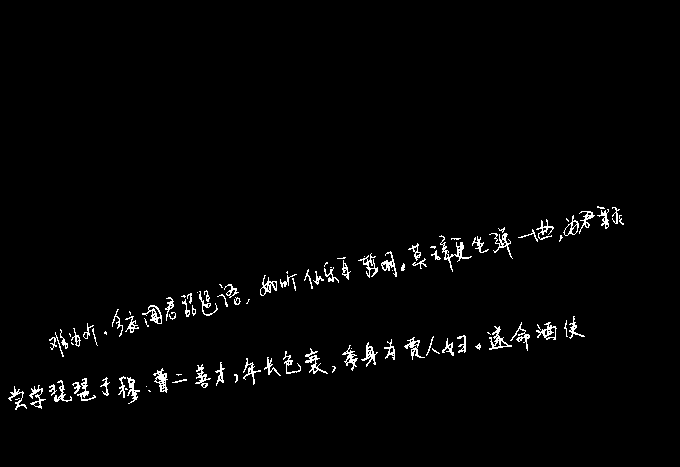 难为听。今夜闻君琵琶语，如听仙乐耳暂明。莫辞更坐弹一曲，为君翻
尝学琵琶于穆、曹二善才，年长色衰，委身为贾人妇。遂命酒使